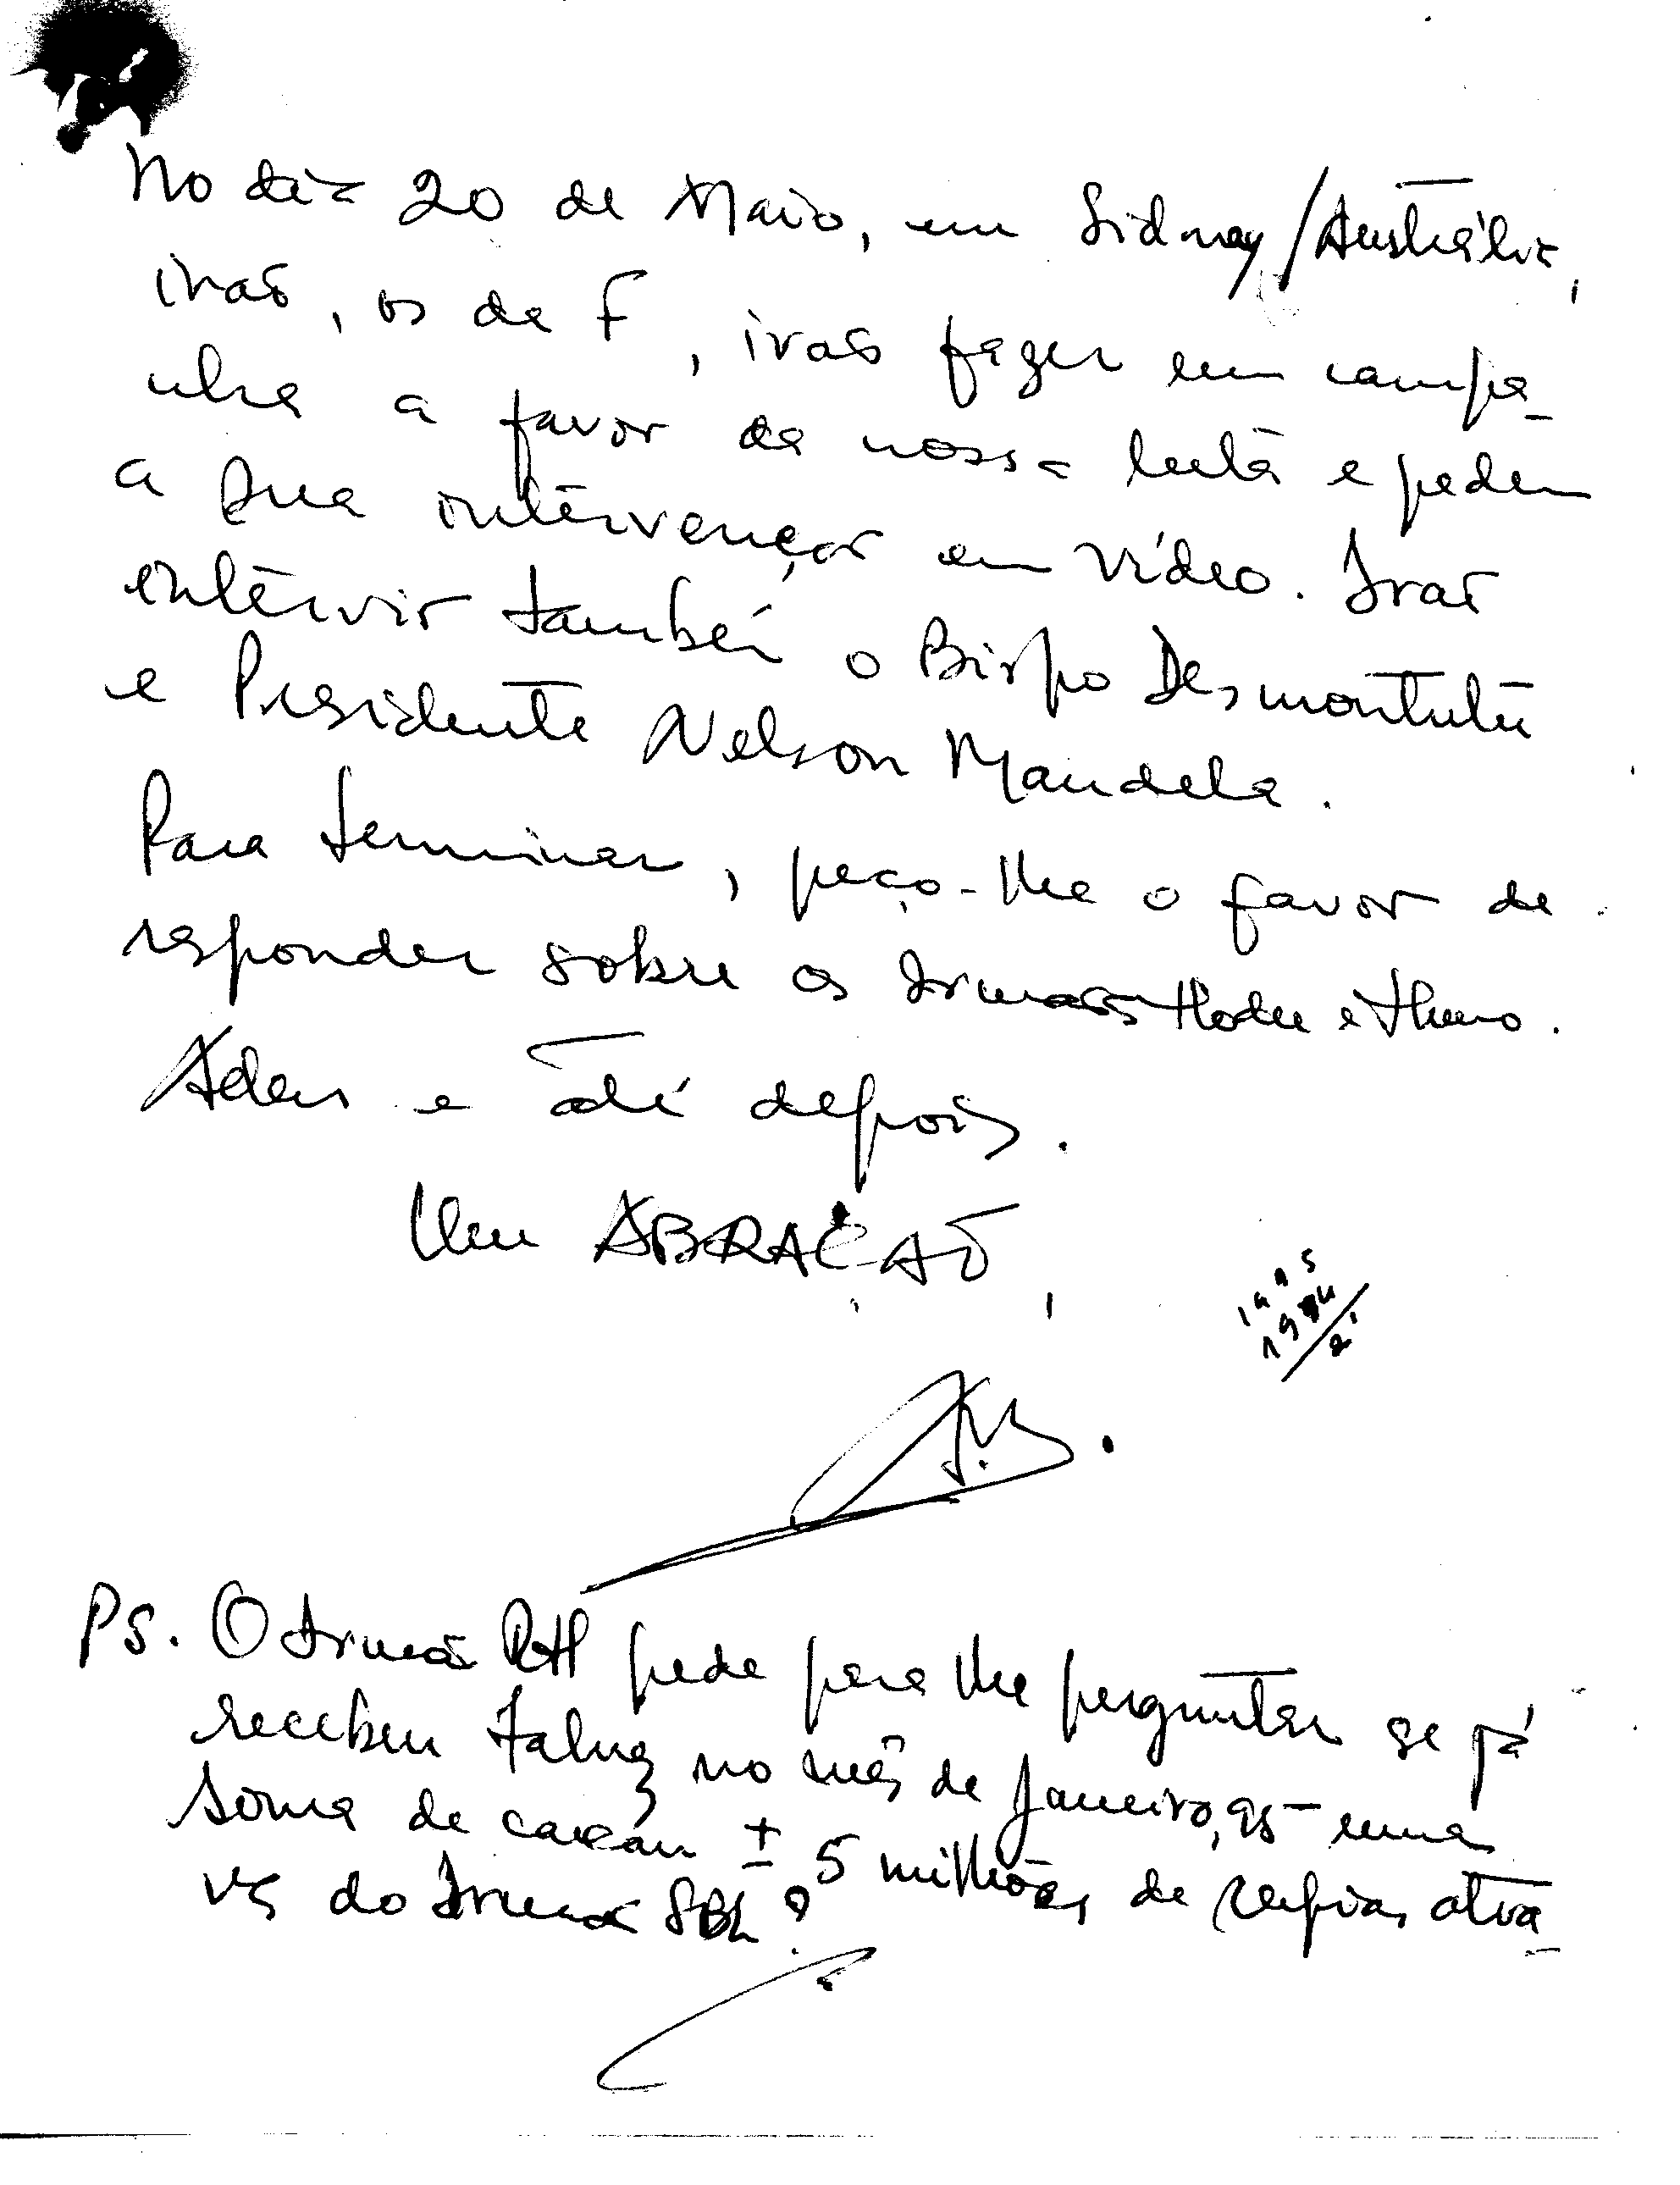 No dia 20 de Maio, em Sidney/Austrália,
irão, os da F, irão fazer em campa-
nha a favor da nossa luta e pedem
a sua intervenção em vídeo. Irão
intervir também o Bispo Desmontutu
e Presidente Nelson Mandela.
Para terminar, peço-lhe o favor de
responder sobre os Irmãos Hodu e Huno.
Adeus e até depois.
Um ABRAÇÃO,
1995
P.S. O Irmão RH pede para lhe perguntar se já
recebeu talvez no mês de Janeiro, 95 uma
soma de ± 5 milhões de rupias atra-
vés do Irmão SBL?